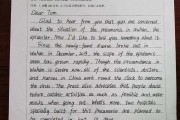 Dear Tom,
Glad to hear from you that you are concerned
about the situation of the pneumonia in Wuhan, the
epicenter. Now I'd like to tell you something about it.
Since the newly-found disease broke out in
Wuhan in December 2019, the scope of the epidemic
even has grown rapidly. Though the circumstance in
Wuhan is severe now, all of the scientists, doctors
and nurses in China work round the clock to overcome
the virus. The press also advocates that people should
reduce outdoor activities as much as possible and wear
masks when going out. What's more, two hospitals
specially built for this pneumonia are planned to
be completed in